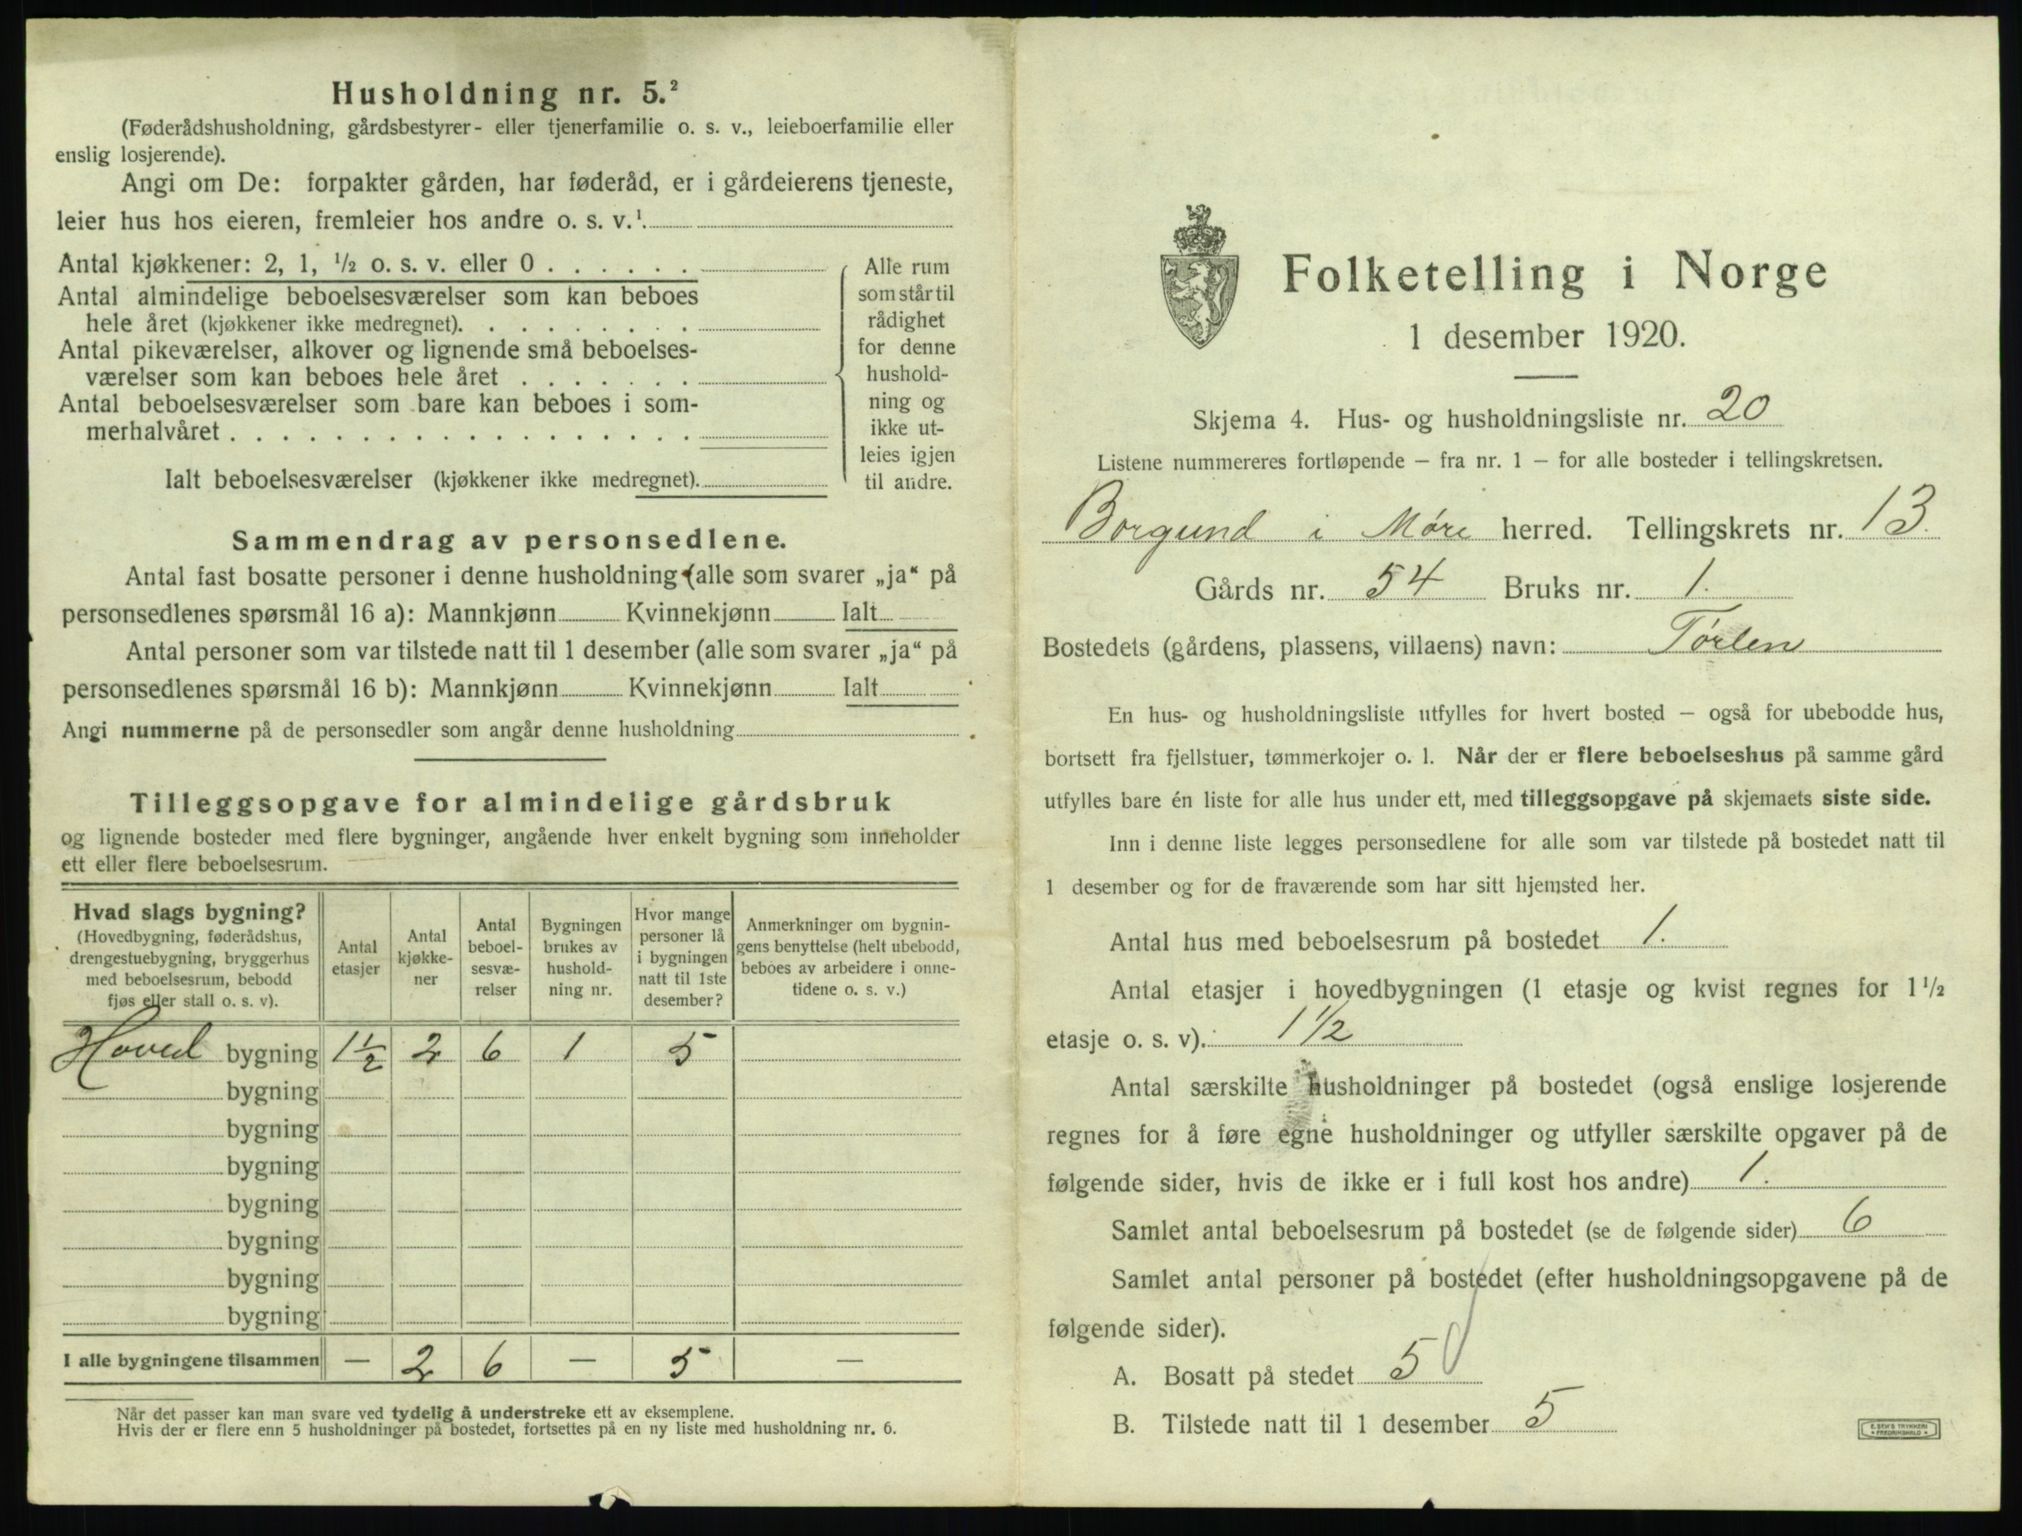 Husholdning nr. 5.²
(Føderådshusholdning, gårdsbestyrer- eller tjenerfamilie o. s. v., leieboerfamilie eller
enslig losjerende).
Angi om De: forpakter gården, har føderåd, er i gårdeierens tjeneste,
leier hus hos eieren, fremleier hos andre o. s. v.¹
Antal kjøkkener: 2, 1, ½ o. s. v. eller 0 . . . . . .
Antal almindelige beboelsesværelser som kan beboes
hele året (kjøkkener ikke medregnet). . . . . . . . .
Antal pikeværelser, alkover og lignende små beboelses-
værelser som kan beboes hele året . . . . . . .
Antal beboelsesværelser som bare kan beboes i som-
merhalvåret . . . . . . . . . . . . . . . . . .
Ialt beboelsesværelser (kjøkkener ikke medregnet).
Alle rum
som står til
rådighet
for denne
hushold-
ning og
ikke ut-
leies igjen
til andre.
Sammendrag av personsedlene.
Antal fast bosatte personer i denne husholdning (alle som svarer „ja“ på
personsedlenes spørsmål 16 a): Mannkjønn Kvinnekjønn Ialt
Antal personer som var tilstede natt til 1 desember (alle som svarer „ja“ på
personsedlenes spørsmål 16 b): Mannkjønn Kvinnekjønn Ialt
Angi nummerne på de personsedler som angår denne husholdning
Tilleggsopgave for almindelige gårdsbruk
og lignende bosteder med flere bygninger, angående hver enkelt bygning som inneholder
ett eller flere beboelsesrum.
Hvad slags bygning?
(Hovedbygning, føderådshus,
drengestuebygning, bryggerhus
med beboelsesrum, bebodd
fjøs eller stall o. s. v).
Antal
etasjer
Antal
kjøkke-
ner
Antal
beboel-
sesvæ-
relser
Bygningen
brukes av
hushold-
ning nr.
Hvor mange
personer lå
i bygningen
natt til 1ste
desember?
Anmerkninger om bygnin-
gens benyttelse (helt ubebodd,
beboes av arbeidere i onne-
tidene o. s. v.)
Hoved bygning 1½ 2 6 1 5
bygning
bygning
bygning
bygning
bygning
bygning
bygning
I alle bygningene tilsammen — 2 6 — 5 —
Når det passer kan man svare ved tydelig å understreke ett av eksemplene.
Hvis der er flere enn 5 husholdninger på bostedet, fortsettes på en ny liste med husholdning nr. 6.
Folketelling i Norge
1 desember 1920.
Skjema 4. Hus- og husholdningsliste nr. 20
Listene nummereres fortløpende – fra nr. 1 – for alle bosteder i tellingskretsen.
Borgund i Møre herred. Tellingskrets nr. 13.
Gårds nr. 54 Bruks nr. 1.
Bostedets (gårdens, plassens, villaens) navn: Tørlen
En hus- og husholdningsliste utfylles for hvert bosted – også for ubebodde hus,
bortsett fra fjellstuer, tømmerkojer o. l. Når der er flere beboelseshus på samme gård
utfylles bare én liste for alle hus under ett, med tilleggsopgave på skjemaets siste side.
Inn i denne liste legges personsedlene for alle som var tilstede på bostedet natt til
1 desember og for de fraværende som har sitt hjemsted her.
Antal hus med beboelsesrum på bostedet 1.
Antal etasjer i hovedbygningen (1 etasje og kvist regnes for 1½
etasje o. s. v). 1½
Antal særskilte husholdninger på bostedet (også enslige losjerende
regnes for å føre egne husholdninger og utfyller særskilte opgaver på de
følgende sider, hvis de ikke er i full kost hos andre) 1.
Samlet antal beboelsesrum på bostedet (se de følgende sider) 6
Samlet antal personer på bostedet (efter husholdningsopgavene på de
følgende sider).
A. Bosatt på stedet 5
B. Tilstede natt til 1 desember 5
E. SEM'S TRYKKERI
FREDRIKSHALD